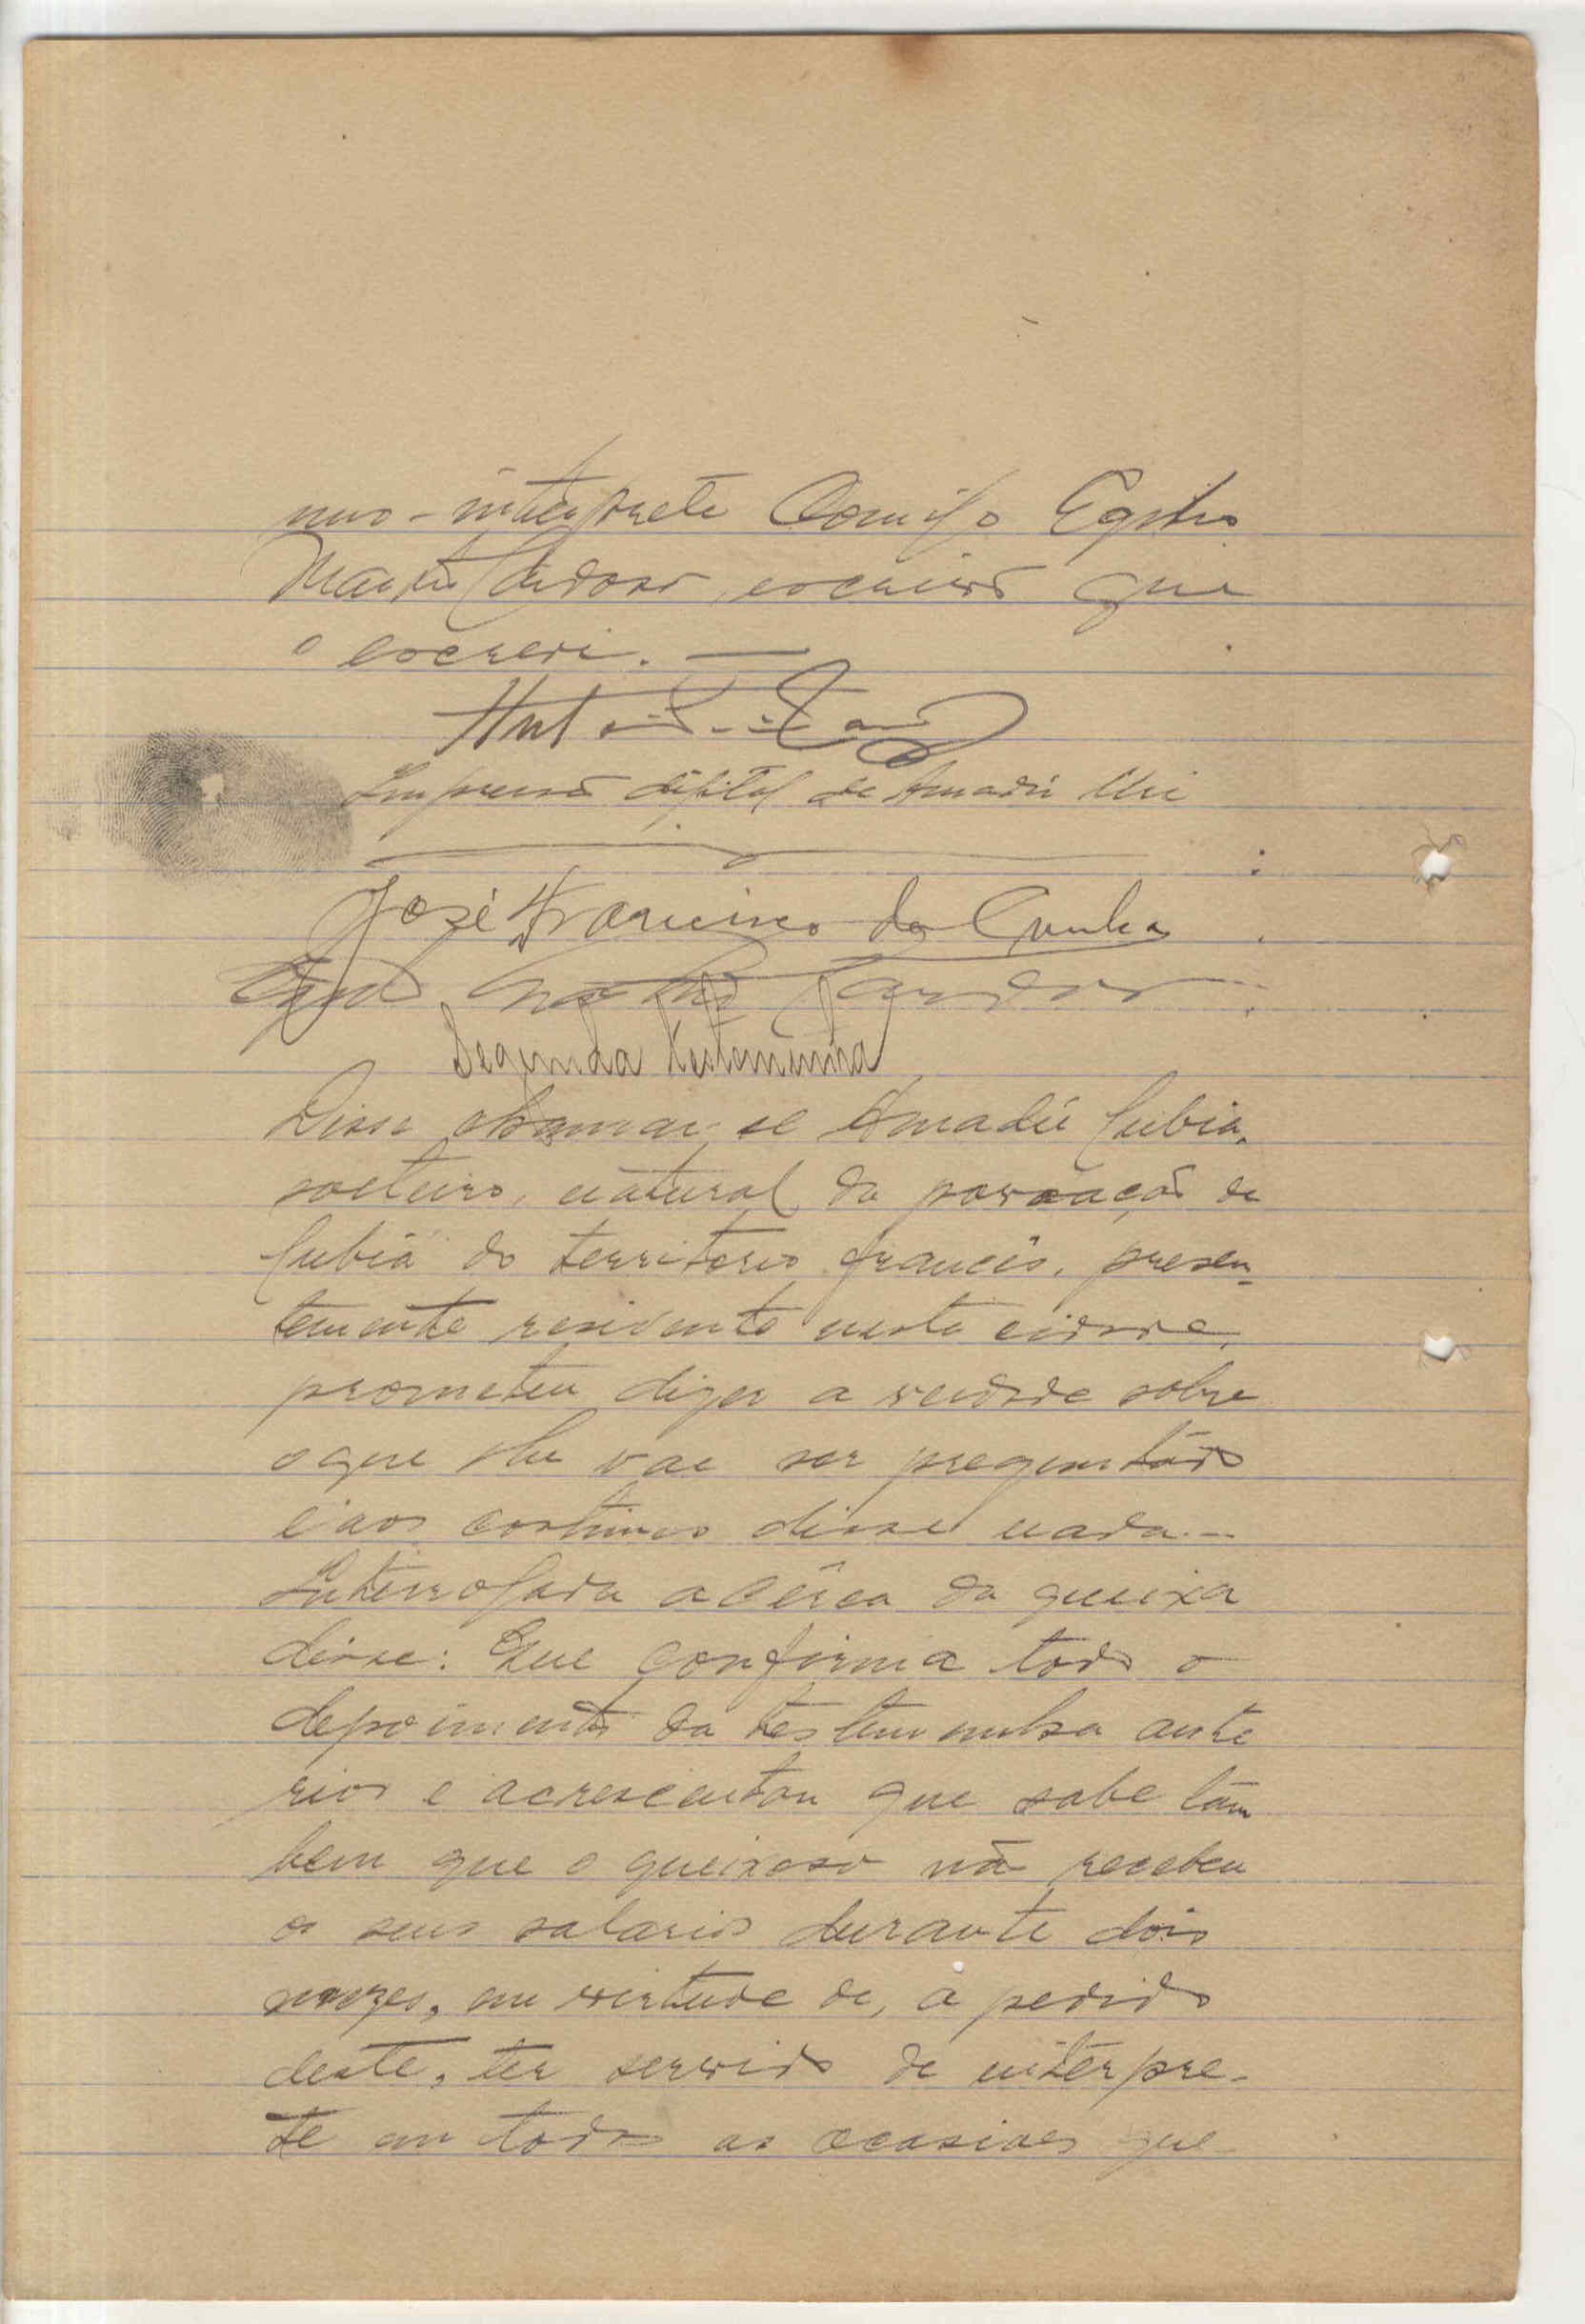 mo-interprete Comigo Egidio
Martins Cardoso, escrivão que
o escrevi. —
Impressão digital de Amadú Uri
José Francisco da Cunha
Cardoso
Segunda testemunha
Disse chamar-se Amadú Cubia,
solteiro, natural da povoação de
Cubia do territorio francês, presen-
temente residente nesta cidade,
prometeu dizer a verdade sobre
o que lhe vae ser preguntado
e aos costumes disse nada.—
Interrogada acêrca da queixa
disse: Que confirma todo o
depoimento da testemunha ante
rior e acrescentou que sabe tam
bem que o queixoso não recebeu
os seus salarios durante dois
mezes, em virtude de, a pedido
deste, ter servido de interpre-
te em todas as ocasiões que